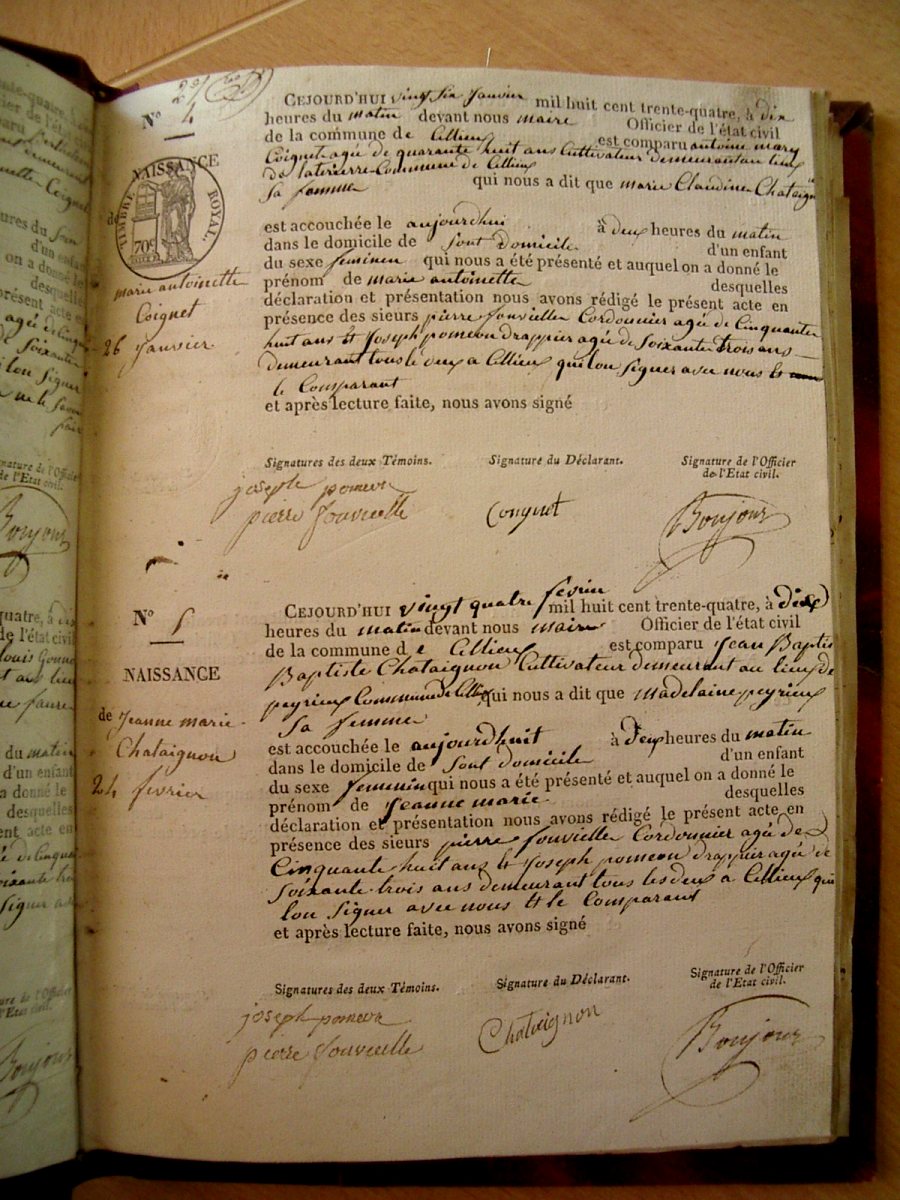 N.º 4
NAISSANCE
TIMBRE ROYAL.
70c
de
marie antoinette
Coignet
26 Janvier
CEJOURD'HUI vingt six Janvier mil huit cent trente-quatre, à dix
heures du matin devant nous maire Officier de l'état civil
de la commune de Cellieu est comparu antoine mary
Coignet agé de quarante huit ans Cultivateur demeurant au lieu
de Commune de Cellieu
qui nous a dit que marie Claudine Chataign
sa femme
est accouchée le aujourdhui à deux heures du matin
dans le domicile de sont domicile d'un enfant
du sexe feminen qui nous a été présenté et auquel on a donné le
prénom de marie antoinette desquelles
déclaration et présentation nous avons rédigé le présent acte en
présence des sieurs pierre fouvielle Cordonnier agé de Cinquante
huit ans et Joseph pomeon drappier agé de soixante trois ans
demeurant tous les deux a Cellieu qui lon signer avec nous et
le Comparant
et après lecture faite, nous avons signé
Signatures des deux Témoins. Signature du Déclarant. Signature de l'Officier
de l'Etat civil.
joseph pomeon
pierre fouvielle Coignet Bonjour
N.º 5
NAISSANCE
de Jeanne marie
Chataignon
24 février
CEJOURD'HUI vingt quatre fevrier mil huit cent trente-quatre, à dix
heures du matin devant nous maire Officier de l'état civil
de la commune de Cellieu est comparu Jean Baptis
Baptiste Chataignon Cultivateur demeurant au lieu de
peyrieux Commune de Cellieu qui nous a dit que Madelaine peyrieux
sa femme
est accouchée le aujourdhuit à deux heures du matin
dans le domicile de sont domicile d'un enfant
du sexe feminin qui nous a été présenté et auquel on a donné le
prénom de Jeanne marie desquelles
déclaration et présentation nous avons rédigé le présent acte en
présence des sieurs pierre fouvielle Cordonnier agé de
Cinquante huit ans et Joseph pomeon drappier agé de
soixante trois ans demeurant tous les deux a Cellieux qui
lon signer avec nous et le Comparant
et après lecture faite, nous avons signé
Signatures des deux Témoins. Signature du Déclarant. Signature de l'Officier
de l'Etat civil.
joseph pomeon
pierre fouvielle Chataignon Bonjour